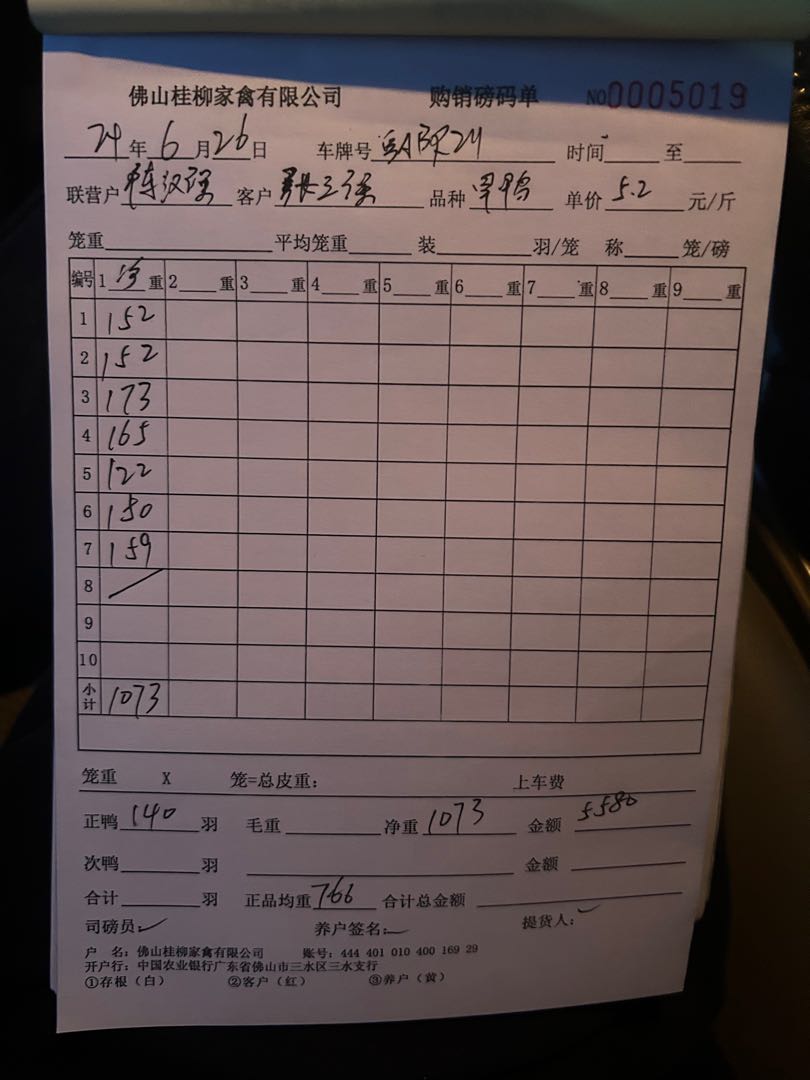 佛山桂柳家禽有限公司 购销磅码单 NO0005019
24年6月26日 车牌号 时间 至
联营户 陈汉强 客户 张三 品种 鸭 单价 5.2 元/斤
笼重 平均笼重 装 羽/笼 称 笼/磅
编号 1 净 重 2 重 3 重 4 重 5 重 6 重 7 重 8 重 9 重
1 152
2 152
3 173
4 165
5 122
6 150
7 159
8 /
9
10
小计 1073
笼重 X 笼=总皮重: 上车费
正鸭 140 羽 毛重 净重 1073 金额 5580
次鸭 羽 金额
合计 羽 正品均重 766 合计总金额
司磅员: 养户签名: 提货人:
户 名: 佛山桂柳家禽有限公司 账号: 444 401 010 400 169 29
开户行: 中国农业银行广东省佛山市三水区三水支行
①存根（白） ②客户（红） ③养户（黄）